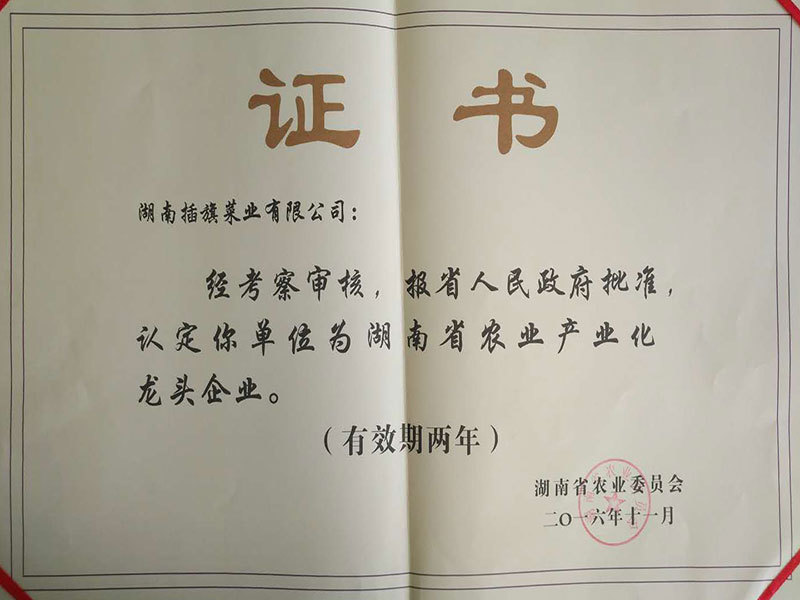 证书
湖南插旗菜业有限公司：
经考察审核，报省人民政府批准，
认定你单位为湖南省农业产业化
龙头企业。
（有效期两年）
湖南省农业委员会
二〇一六年十一月